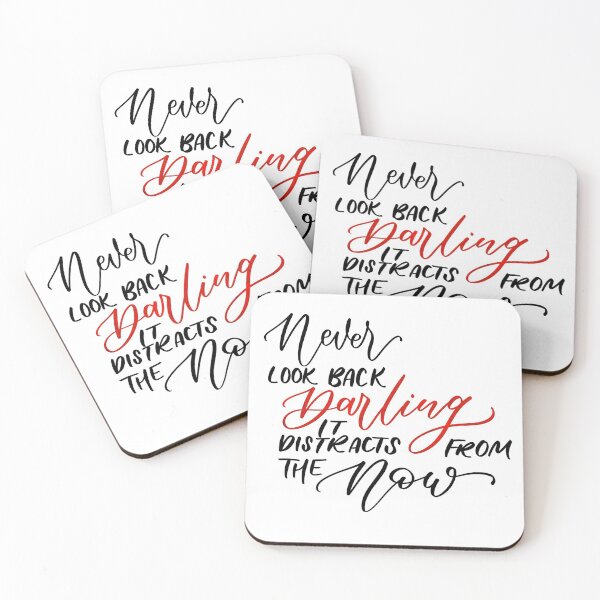 Never
LOOK BACK
Darling
Never
LOOK BACK
Darling
IT
DISTRACTS FROM
THE Now
Never
LOOK BACK
Darling
IT
DISTRACTS FROM
THE Now
Never
LOOK BACK
Darling
IT
DISTRACTS FROM
THE Now